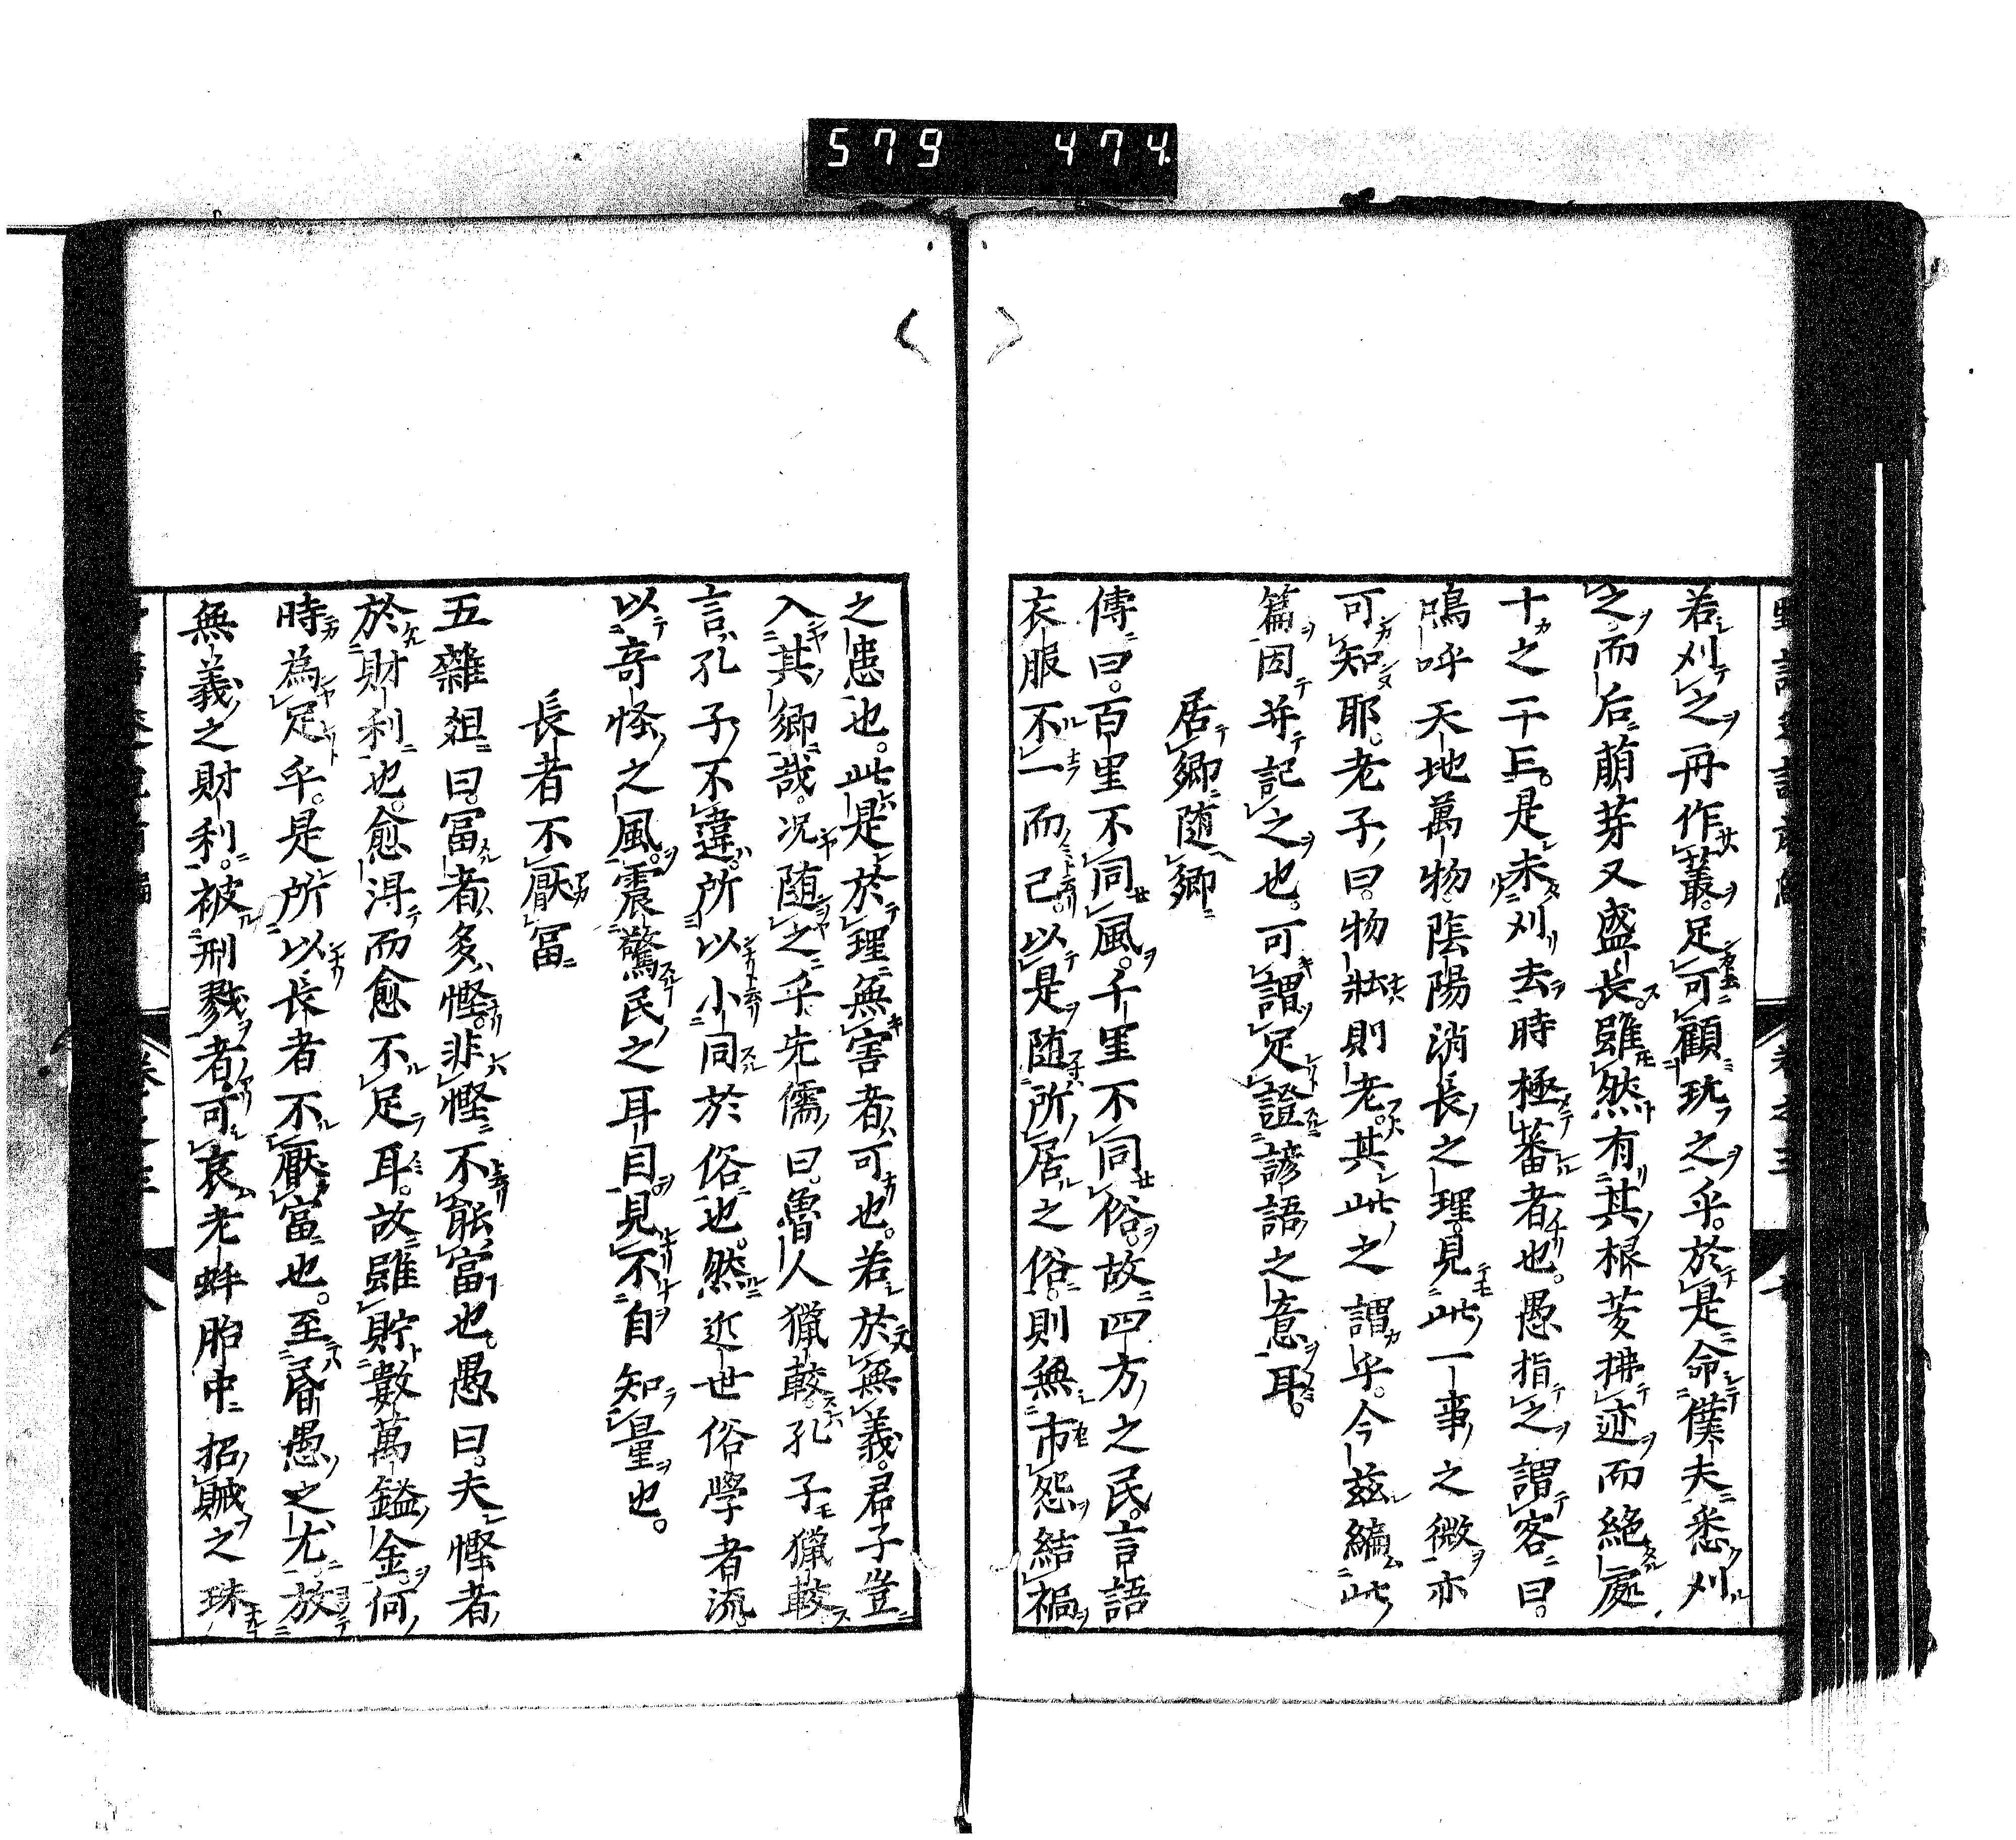 579 474
若刈之再作叢。足可顧玩之乎。於是命僕夫悉刈
之。而后萠芽又盛長。雖然有其根荄拂迹而絶處
十之干上。是未刈去時極蕃者也。愚指之謂客曰。
嗚呼天地萬物。陰陽消長之理。見此一事之微亦
可知耶。老子曰。物壯則老。其此之謂乎。今茲編此
篇因并記之也。可謂足證諺語之意耳。
居郷随郷
傳曰。百里不同風。千里不同俗。故四方之民。言語
衣服不一而已。以是随所居之俗。則無市怨結禍
之患也。此是於理無害者可也。若於無義。君子豈
入其郷哉。况随之乎。先儒曰。魯人獵較。孔子獵較
言孔子不違。所以小同於俗也。然近世俗學者流。
以竒怪之風。震驚民之耳目。見不自知量也。
長者不厭冨
五雜爼曰。冨者多慳。非慳不能富也。愚曰。夫慳者
於財利也。愈淂而愈不足耳。故雖貯數萬鎰金。何
時為足乎。是所以長者不厭富也。至昏愚之尤。放
無義之財利。被刑戮者可哀。老蚌胎中招賊之珠